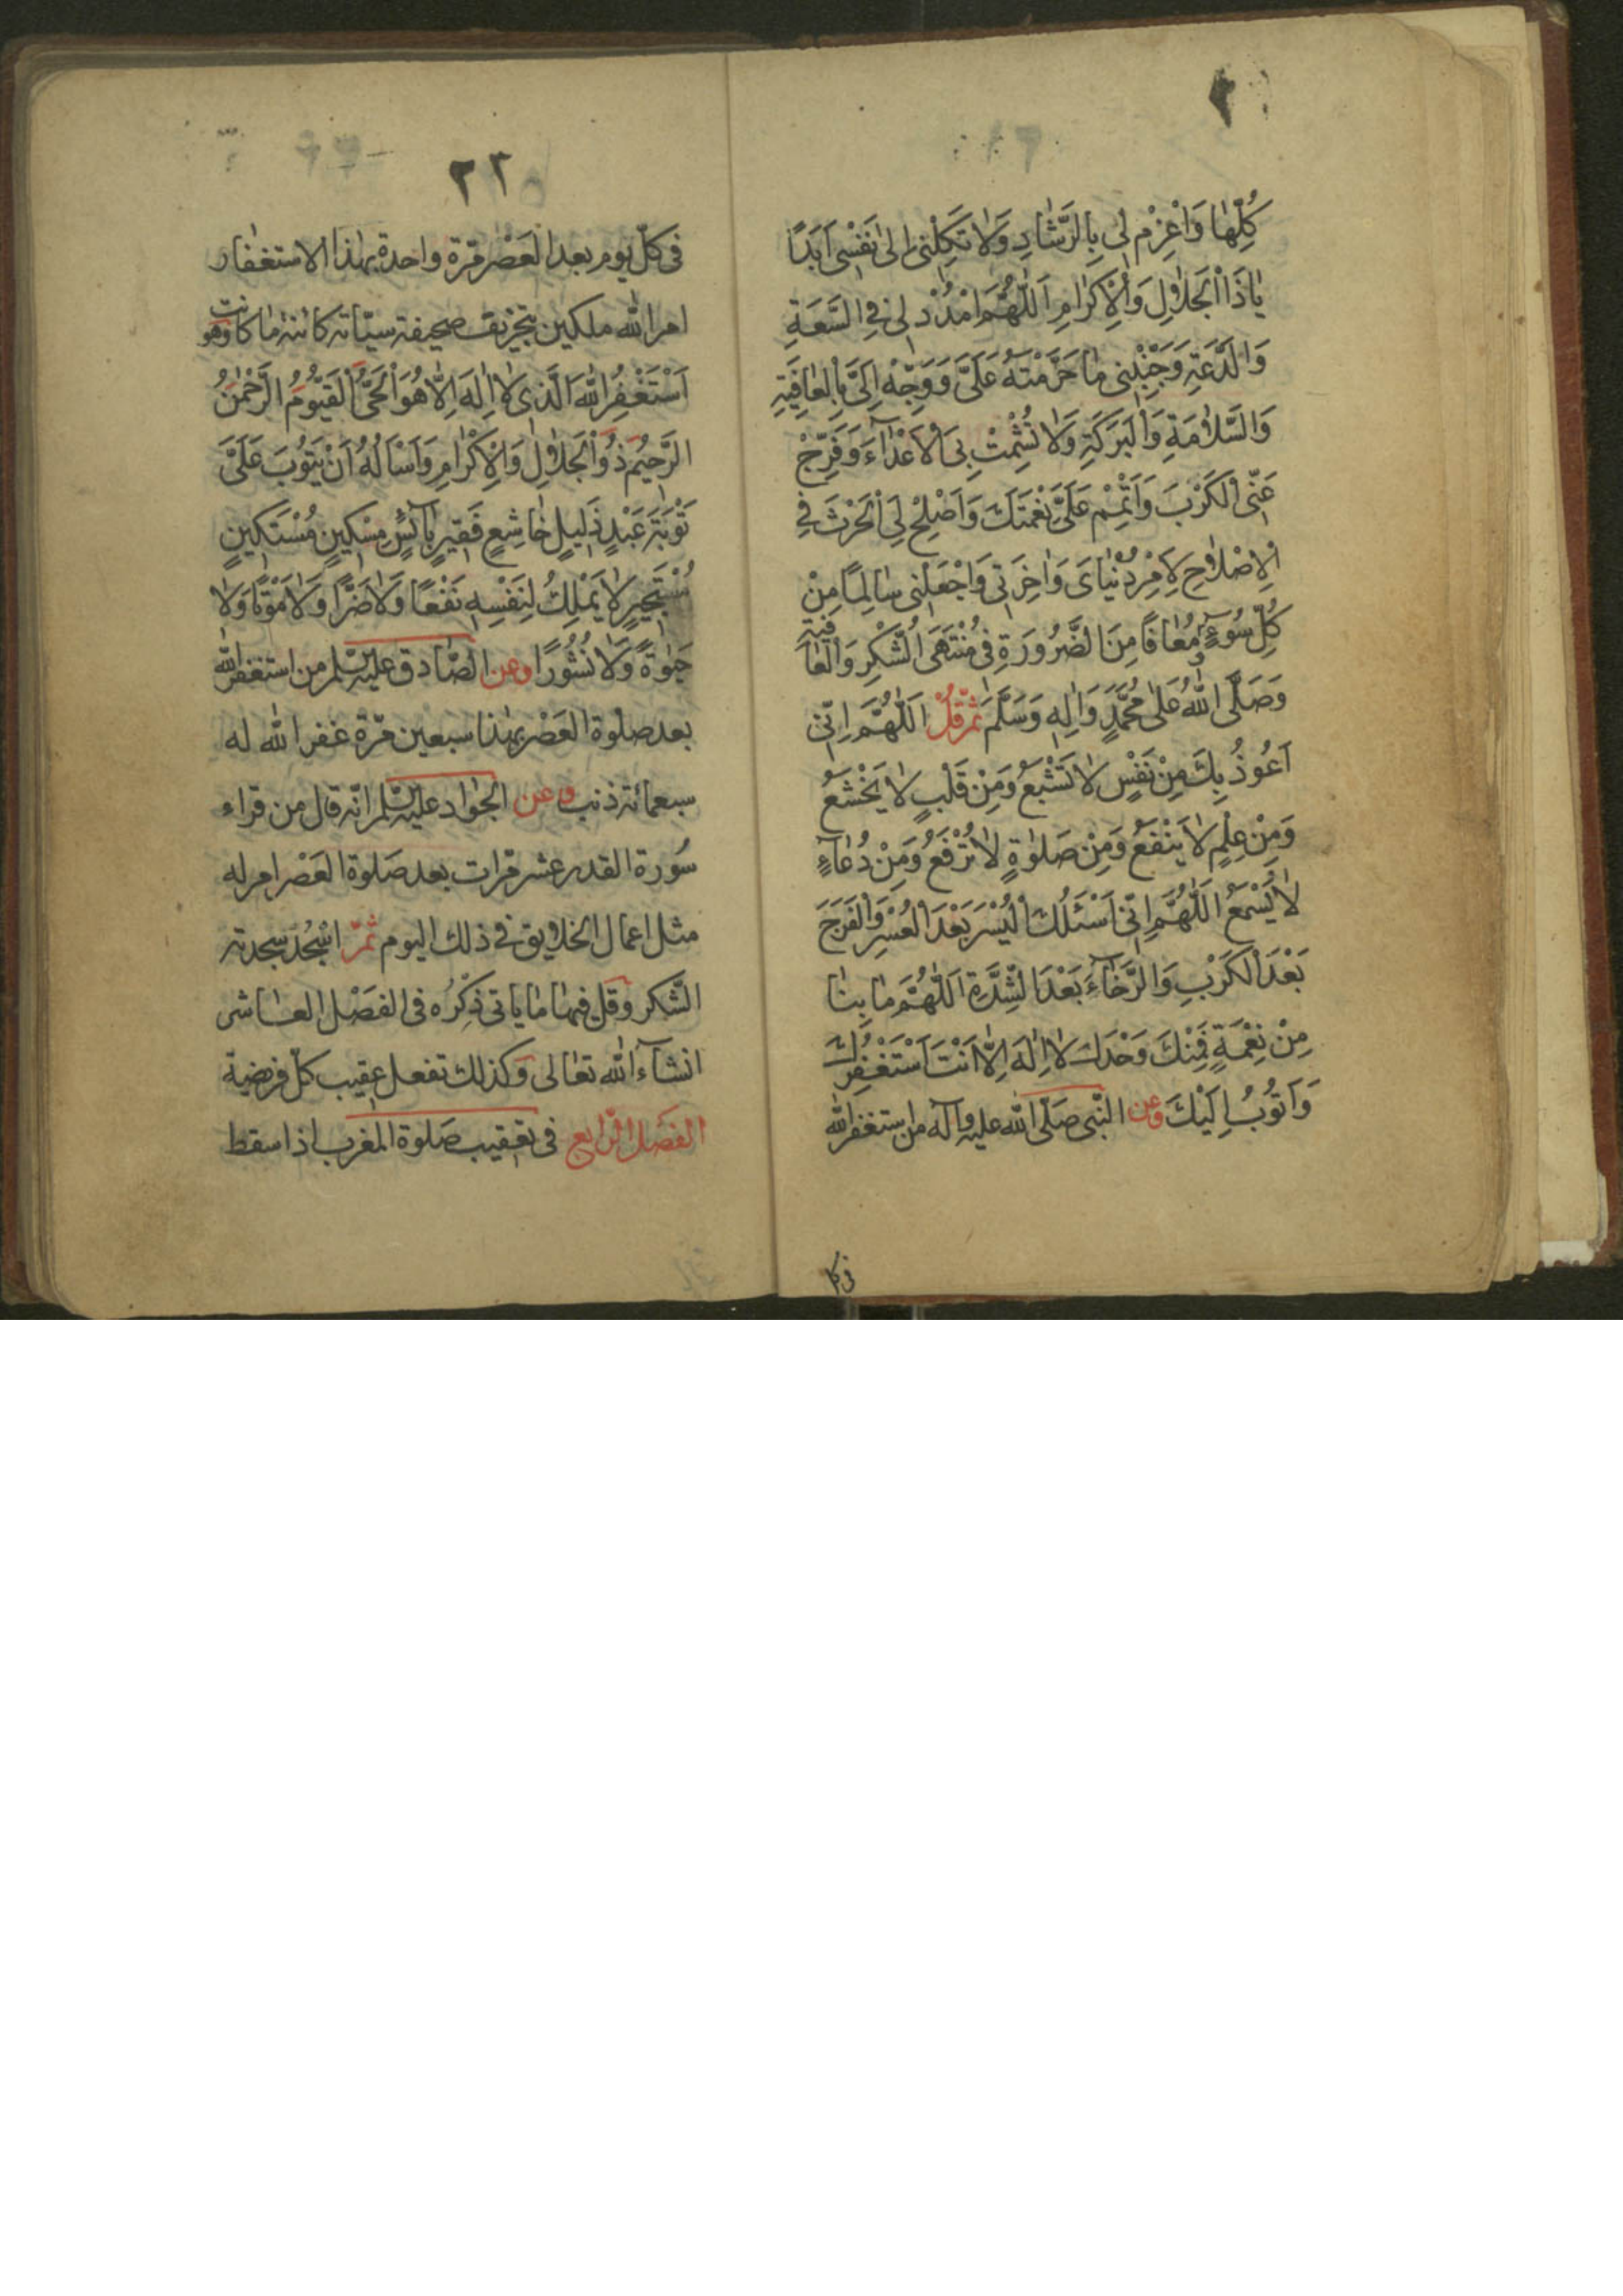 كُلِّهٰا وَاعْزِمْ لى بِالرَّشٰادِ وَلاٰ تَكِلْنى اِلىٰ نَفْسى اَبَدًا
يٰا ذَا الْجَلاٰلِ وَالْاِكْرٰامِ اَللّٰهُمَّ امْدُدْ لى فِى السَّعَةِ
وَالدَّعَةِ وَجَنِّبْنى مٰا حَرَّمْتَهُ عَلَىَّ وَوَجِّهْ اِلَىَّ بِالْعٰافِيَةِ
وَالسَّلاٰمَةِ وَالْبَرَكَةِ وَلاٰ تُشْمِتْ بِىَ الْاَعْدٰآءَ وَفَرِّجْ
عَنِّى الْكَرْبَ وَاَتْمِمْ عَلَىَّ نِعْمَتَكَ وَاَصْلِحْ لِىَ الْحَرْثَ فِى
الْاِصْلاٰحِ لِاَمْرِ دُنْيٰاىَ وَاٰخِرَتى وَاجْعَلْنى سٰالِمًا مِنْ
كُلِّ سُوۤءٍ مُعٰافًا مِنَ الضَّرُورَةِ فى مُنْتَهَى الشُّكْرِ وَالْعٰافِيَةِ
وَصَلَّى اللّٰهُ عَلىٰ مُحَمَّدٍ وَاٰلِهِ وَسَلَّمَ ثمّ قُلْ اَللّٰهُمَّ اِنّى
اَعُوذُ بِكَ مِنْ نَفْسٍ لاٰ تَشْبَعُ وَمِنْ قَلْبٍ لاٰ يَخْشَعُ
وَمِنْ عِلْمٍ لاٰ يَنْفَعُ وَمِنْ صَلٰوةٍ لاٰ تُرْفَعُ وَمِنْ دُعٰآءٍ
لاٰ يُسْمَعُ اَللّٰهُمَّ اِنّى اَسْئَلُكَ الْيُسْرَ بَعْدَ الْعُسْرِ وَالْفَرَجَ
بَعْدَ الْكَرْبِ وَالرَّخٰآءَ بَعْدَ الشِّدَّةِ اَللّٰهُمَّ مٰا بِنٰا
مِنْ نِعْمَةٍ فَمِنْكَ وَحْدَكَ لاٰ اِلٰهَ اِلاّٰ اَنْتَ اَسْتَغْفِرُكَ
وَاَتُوبُ اِلَيْكَ وعن النّبى صلّى اللّٰه عليه وآله من استغفر اللّٰه
فى كل
٢٣
فى كلّ يوم بعد العَصْر مرّة واحدة بهٰذا الاستغفار
امر اللّٰه ملكين بتخريق صحيفة سيّاته كائنة ما كانت وهو
اَسْتَغْفِرُ اللّٰهَ الَّذى لاٰ اِلٰهَ اِلاّٰ هُوَ الْحَىُّ الْقَيُّومُ الرَّحْمٰنُ
الرَّحيمُ ذُو الْجَلاٰلِ وَالْاِكْرٰامِ وَاَسْاَلُهُ اَنْ يَتُوبَ عَلَىَّ
تَوْبَةَ عَبْدٍ ذَليلٍ خٰاشِعٍ فَقيرٍ بٰآئِسٍ مِسْكينٍ مُسْتَكينٍ
مُسْتَجيرٍ لاٰ يَمْلِكُ لِنَفْسِهِ نَفْعًا وَلاٰ ضَرًّا وَلاٰ مَوْتًا وَلاٰ
حَيٰوةً وَلاٰ نُشُورًا وعن الصّٰادق عليه السّلم من استغفر اللّٰه
بعد صلٰوة العَصْر بهٰذا سبعين مرّة غفر اللّٰه له
سبعمائة ذنب وعن الجوٰاد عليه السّلم انّه قال من قراء
سُورة القدر عشر مرّات بعد صَلوة العَصْر امر له
مثل اعمال الخلايق فى ذلك اليوم ثمّ اسْجُد سجدتى
الشّكر وقل فيهٰا مٰا ياتى ذِكْرُه فى الفَصْل العٰاشر
انشآء اللّٰه تعٰالى وكذلك تفعل عقيب كلّ فريضة
الفَصَل الرّابع فى تعقيب صَلوة المغرب اذا سقط